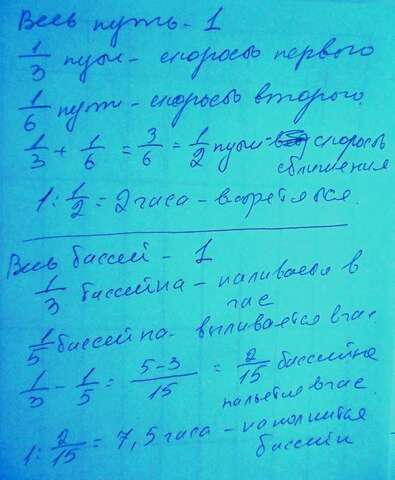 Весь путь - 1
1/3 пути - скорость первого
1/6 пути - скорость второго.
1/3 + 1/6 = 3/6 = 1/2 пути - скорость
сближения
1 : 1/2 = 2 часа - встретятся.
Весь бассей - 1
1/3 бассейна - наливается в
час
1/5 бассейна - выливается в час
1/3 - 1/5 = 5-3/15 = 2/15 бассейна
нальется в час.
1 : 2/15 = 7,5 часа - наполнится
бассейн